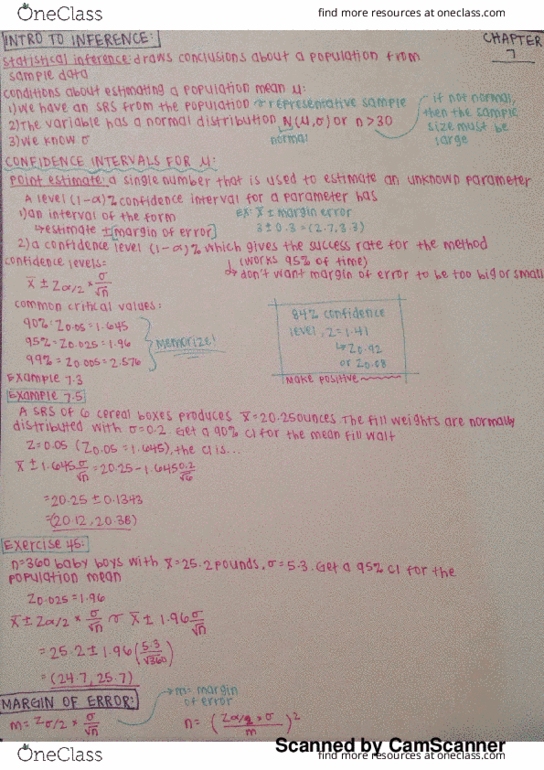 OneClass
find more resources at oneclass.com
INTRO TO INFERENCE:
CHAPTER 7
Statistical inference: draws conclusions about a population from
sample data
conditions about estimating a population mean μ:
1) we have an SRS from the population → representative sample
2) The variable has a normal distribution N(μ,σ) or n>30
normal
if not normal,
then the sample
size must be
large
3) we know σ
CONFIDENCE INTERVALS FOR μ:
Point estimate: a single number that is used to estimate an unknown parameter
A level (1-α)% confidence interval for a parameter has
1) an interval of the form
Ex: x̄ ± margin error
↳ estimate ± [margin of error]
3 ± 0.3 = (2.7, 3.3)
2) a confidence level (1-α)% which gives the success rate for the method
↓ (works 95% of time)
↳ don't want margin of error to be too big or small
confidence levels:
x̄ ± Zα/2 × σ/√n
common critical values:
90% : Z0.05 = 1.645
95% = Z0.025 = 1.96
99% = Z0.005 = 2.576
Memorize!
84% confidence
level, Z = 1.41
↳ Z0.92
or Z0.08
Make positive
Example 7.3
Example 7.5
A SRS of 6 cereal boxes produces x̄ = 20.25 ounces. The fill weights are normally
distributed with σ = 0.2. Get a 90% CI for the mean fill wait
Z = 0.05 (Z0.05 = 1.645), the CI is...
x̄ ± 1.645 σ/√n = 20.25 - 1.645 0.2/√6
= 20.25 ± 0.1343
= (20.12, 20.38)
Exercise 45:
n = 360 baby boys with x̄ = 25.2 pounds, σ = 5.3. Get a 95% CI for the
population mean
Z0.025 = 1.96
x̄ ± Zα/2 × σ/√n → x̄ ± 1.96 σ/√n
= 25.2 ± 1.96 (5.3/√360)
= (24.7, 25.7)
MARGIN OF ERROR:
→ m = margin
of error
m = Zα/2 × σ/√n
n = (Zα/2 × σ / m)²
Scanned by CamScanner
OneClass
find more resources at oneclass.com